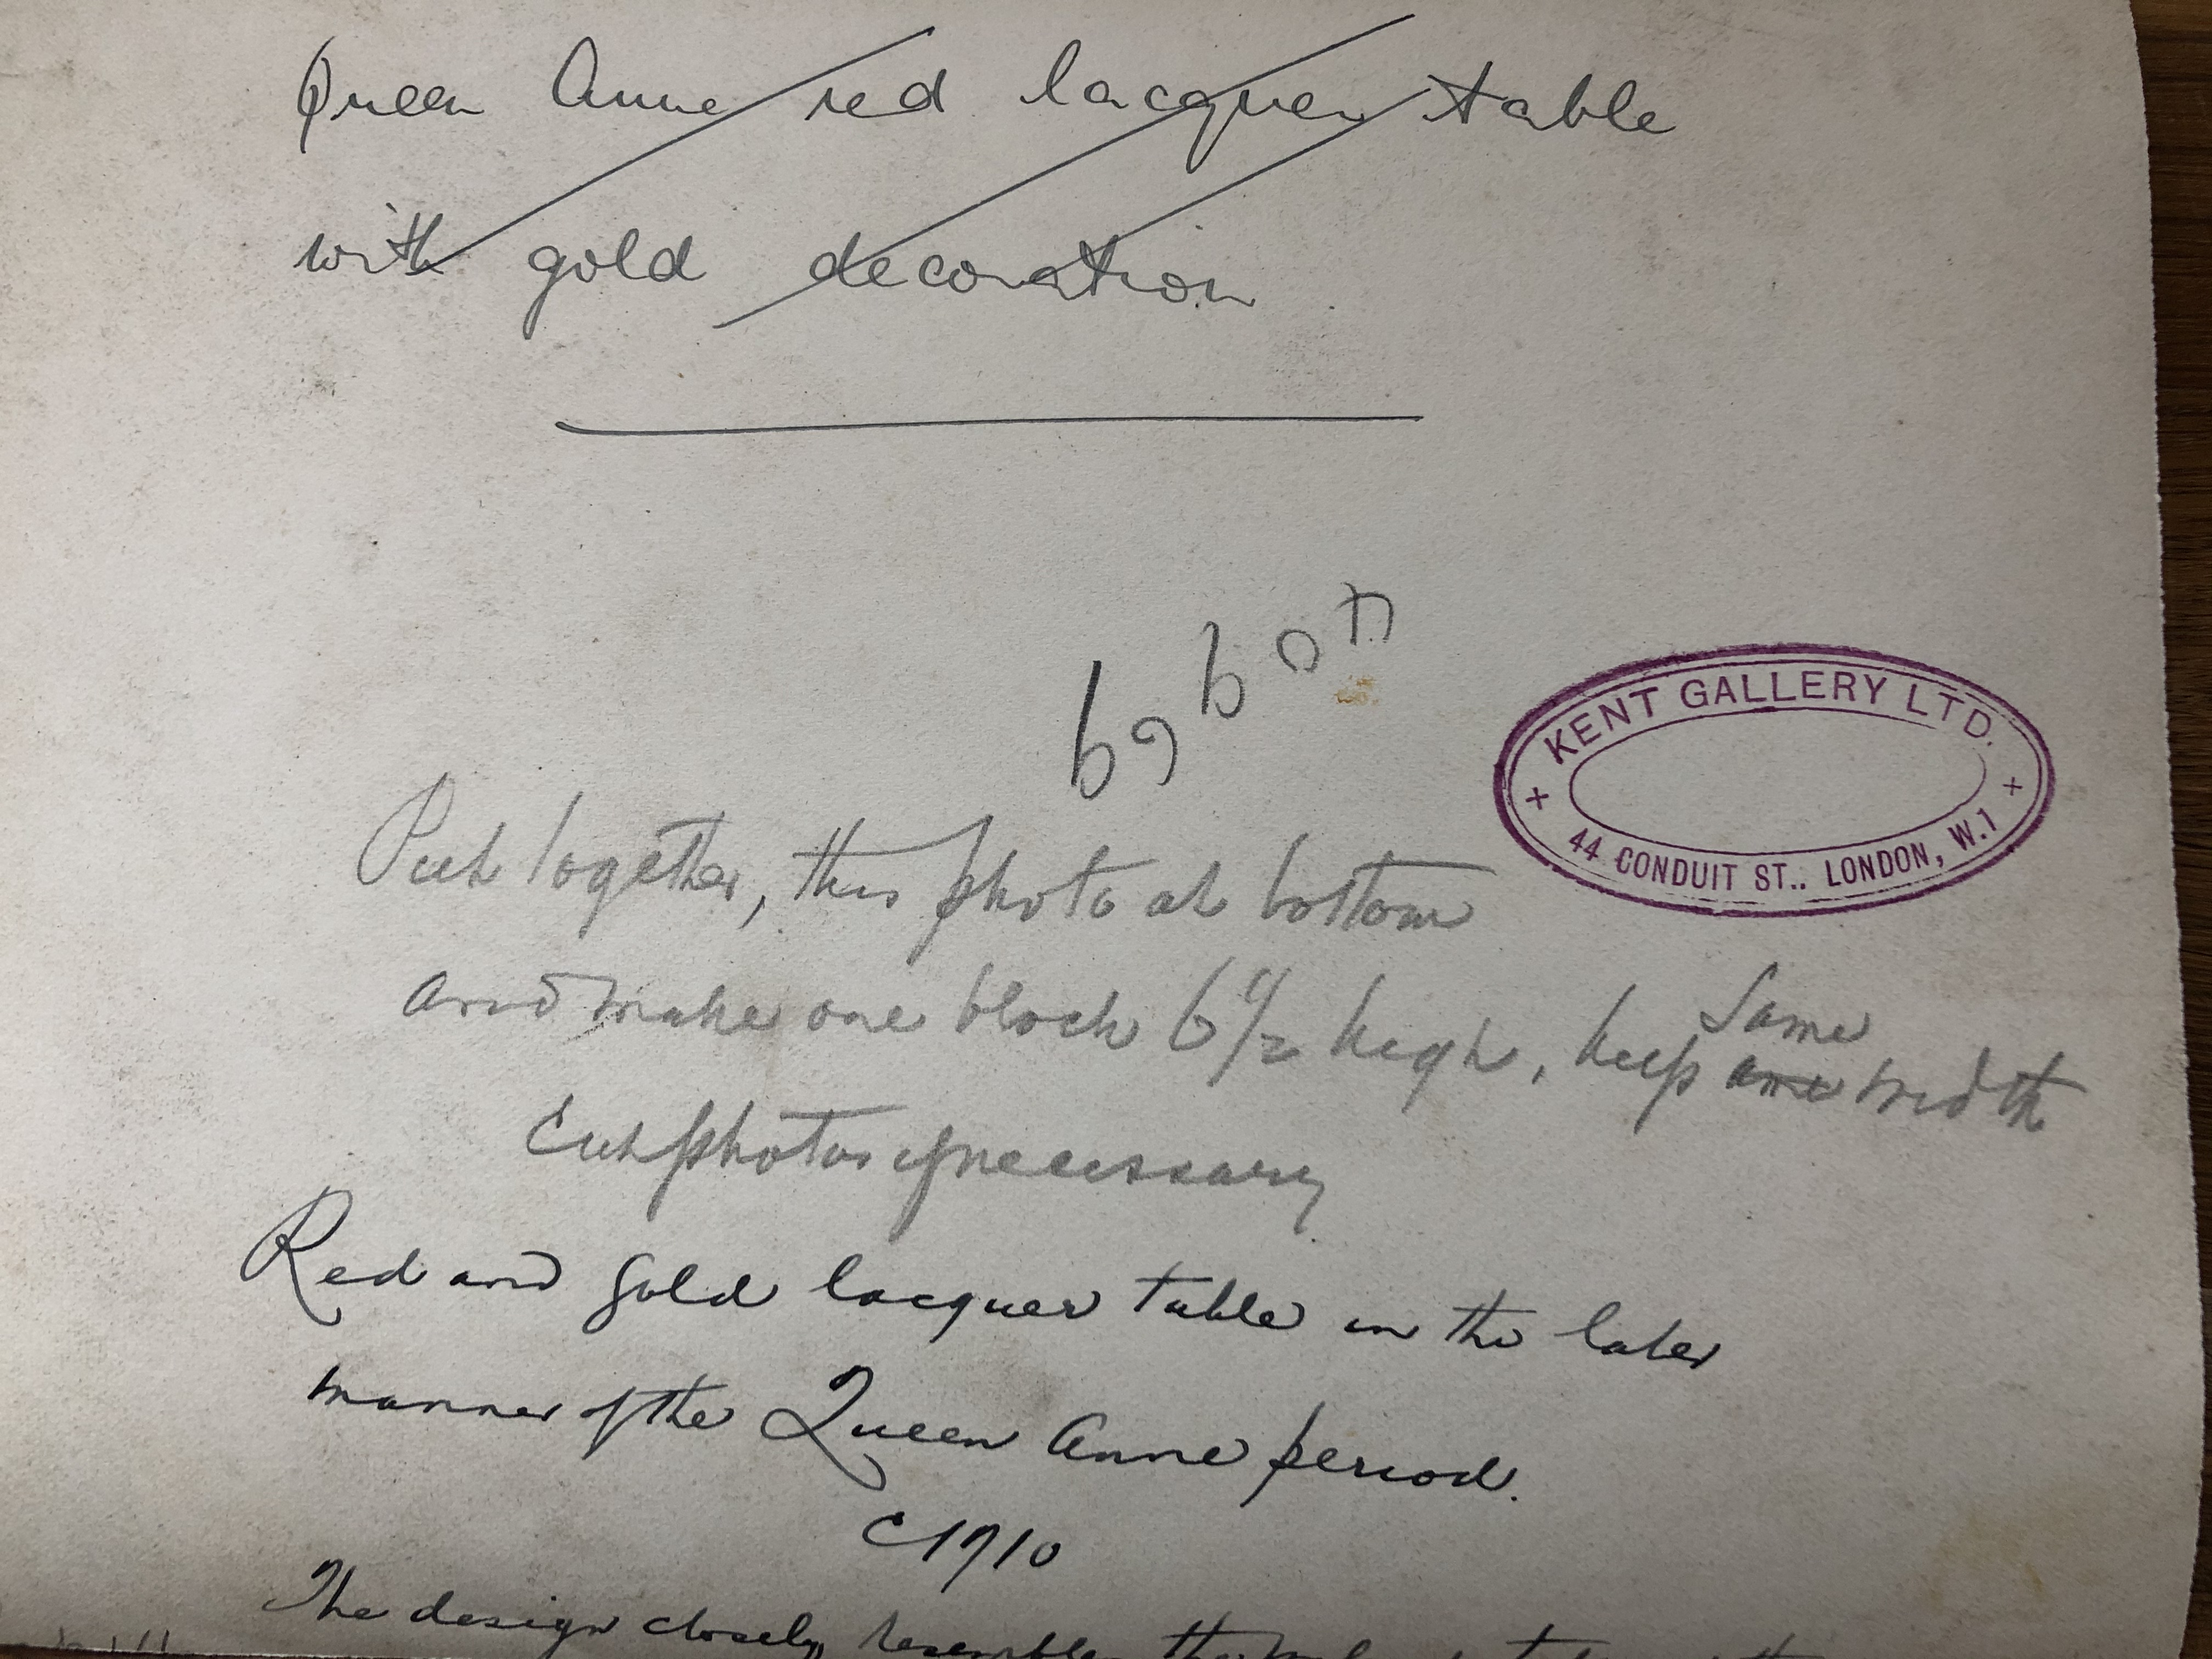 Queen Anne red lacquer table
with gold decoration
KENT GALLERY LTD.
44 CONDUIT ST.. LONDON, W.1
Put together, this photo at bottom
and make one block 6 1/2 high, keep same width
Cut photos if necessary
Red and gold lacquer table in the later
manner of the Queen Anne period.
C1710
The design closely resembles